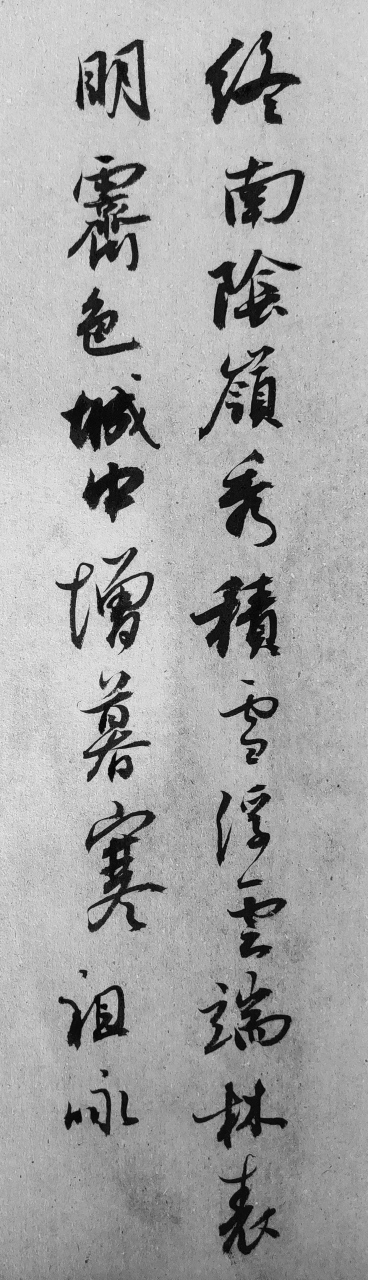 終南陰嶺秀積雪浮雲端林表
明霽色城中增暮寒祖咏